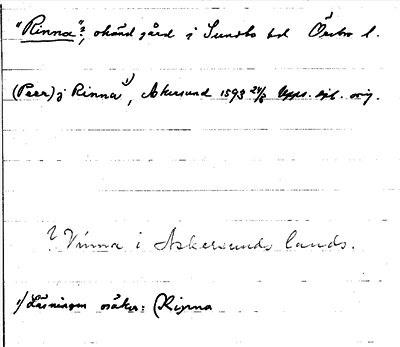 "Rinna"?, okänd gård i Sundbo hd Örebro l.
(Peer) j Rinna 1), Askersund 1593 24/8 Upps. dpl. orig.
? Vinna i Askersunds lands.
1) Läsningen osäker: (Rinna